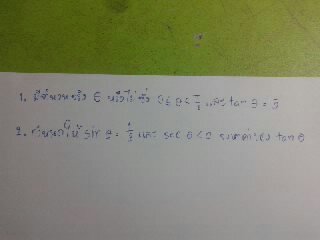 1. มีจำนวนจริง θ หรือไม่ ซึ่ง 0 ≤ θ ≤ π/2 และ tan θ =
2. กำหนดให้ sin θ = และ sec θ < 0 จงหาค่าของ tan θ